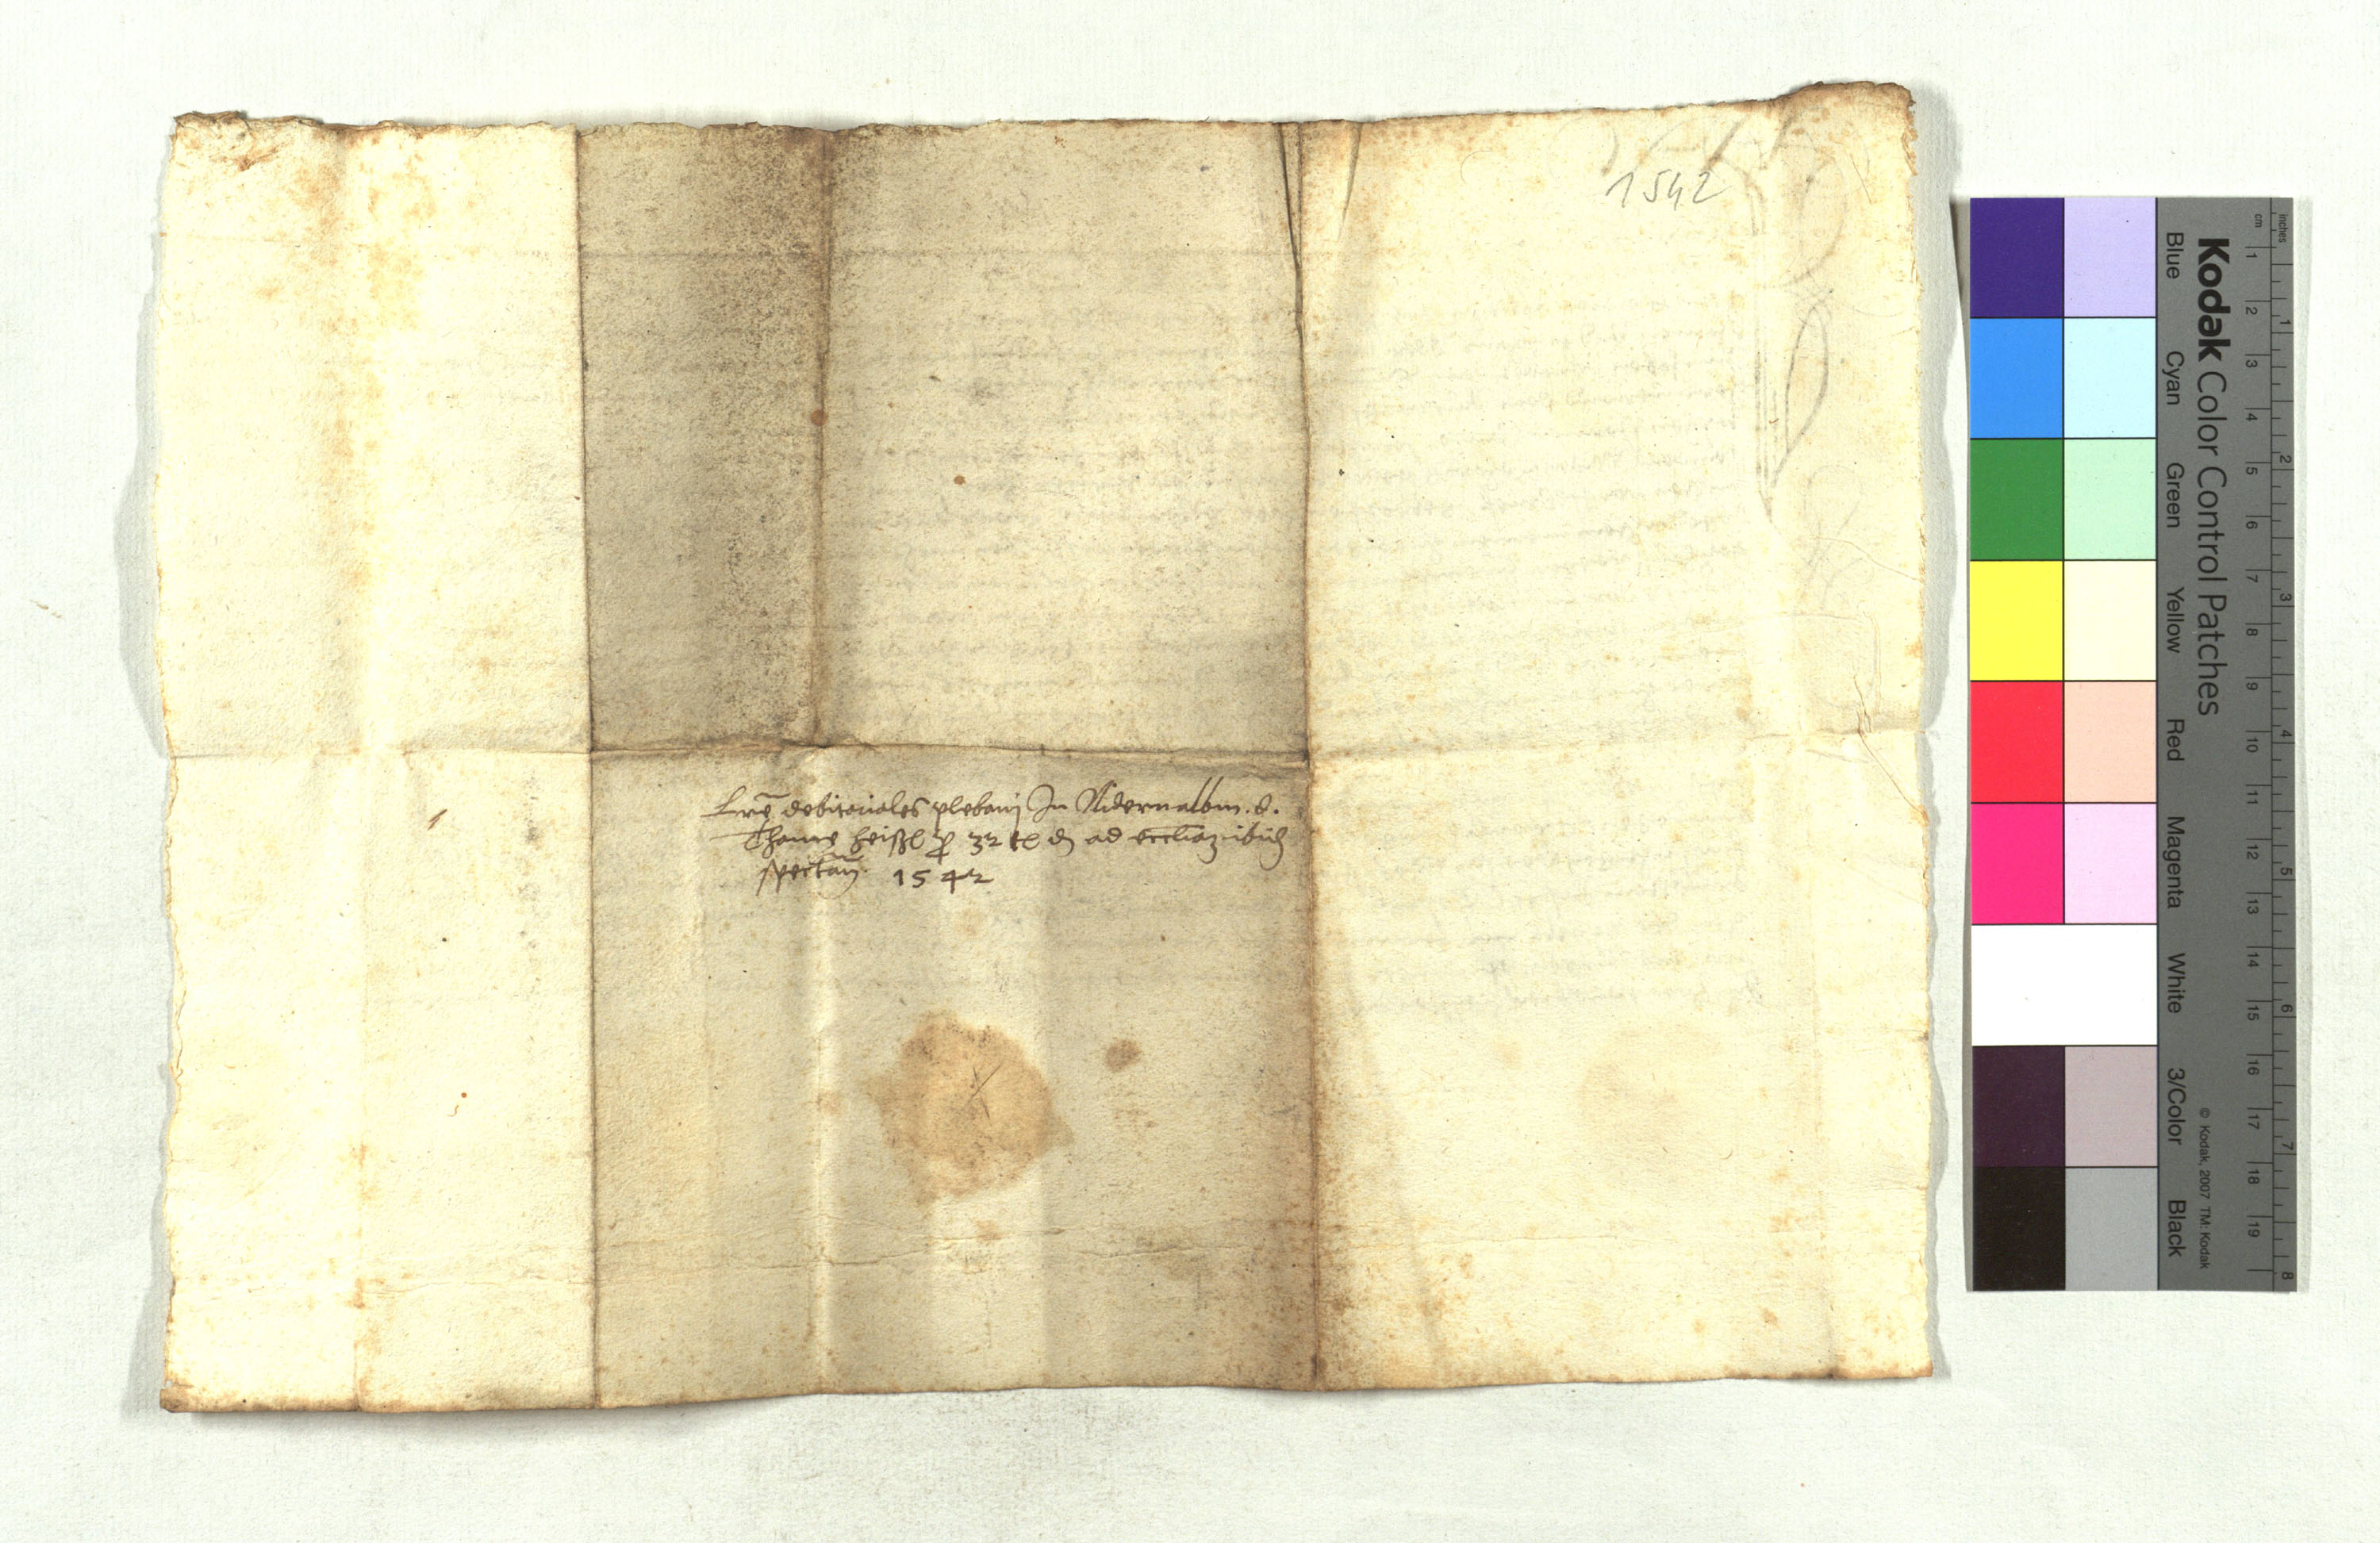 1542
Lrē debitoriales plebanj In Nidernalbm. d.
Thome heißl p 32 tl dn ad
spectan̄. 1542
Kodak Color Control Patches
Blue Cyan Green Yellow Red Magenta White 3/Color Black
© Kodak, 2007 TM: Kodak
cm 1 2 3 4 5 6 7 8 9 10 11 12 13 14 15 16 17 18 19
inches 1 2 3 4 5 6 7 8